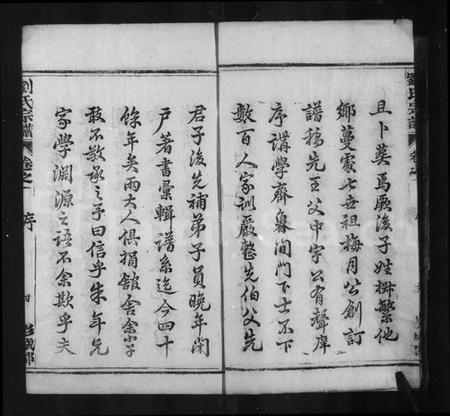 且卜葵焉厥後子姓拚繁他
鄉蔓處七吾祖梅月公創訂
譜稿先王父中字公有聲庠
序講學齊魯間門下士不下
數百人家訓嚴整先伯父先
君子後先補弟子員晚年閉
戶著書彙輯譜系迄今四十
餘年矣兩大人俱捐館舍余小子
敢不敬承之予曰信乎朱年兄
家學淵源之語不余欺乎夫
劉氏宗譜
卷之一
序
彭城郡
劉氏宗譜
卷之